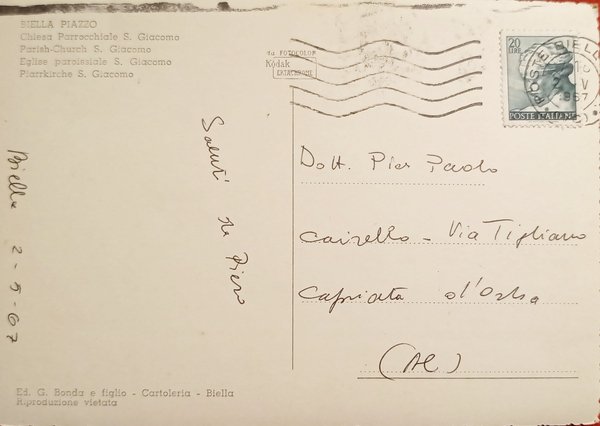 BIELLA PIAZZO
Chiesa Parrocchiale S. Giacomo
Parish-Church S. Giacomo
Eglise paroissiale S. Giacomo
Pfarrkirche S. Giacomo
da FOTOCOLOR
Kodak
EKTACHROME
20
LIRE
POSTE ITALIANE
POSTE BIELLA
1967
Saluti da Piero
Biella 2-5-67
Dott. Pier Paolo
Cairello - Via Tigliano
Capriata d'Orba
(AL)
Ed. G. Bonda e figlio - Cartoleria - Biella
Riproduzione vietata